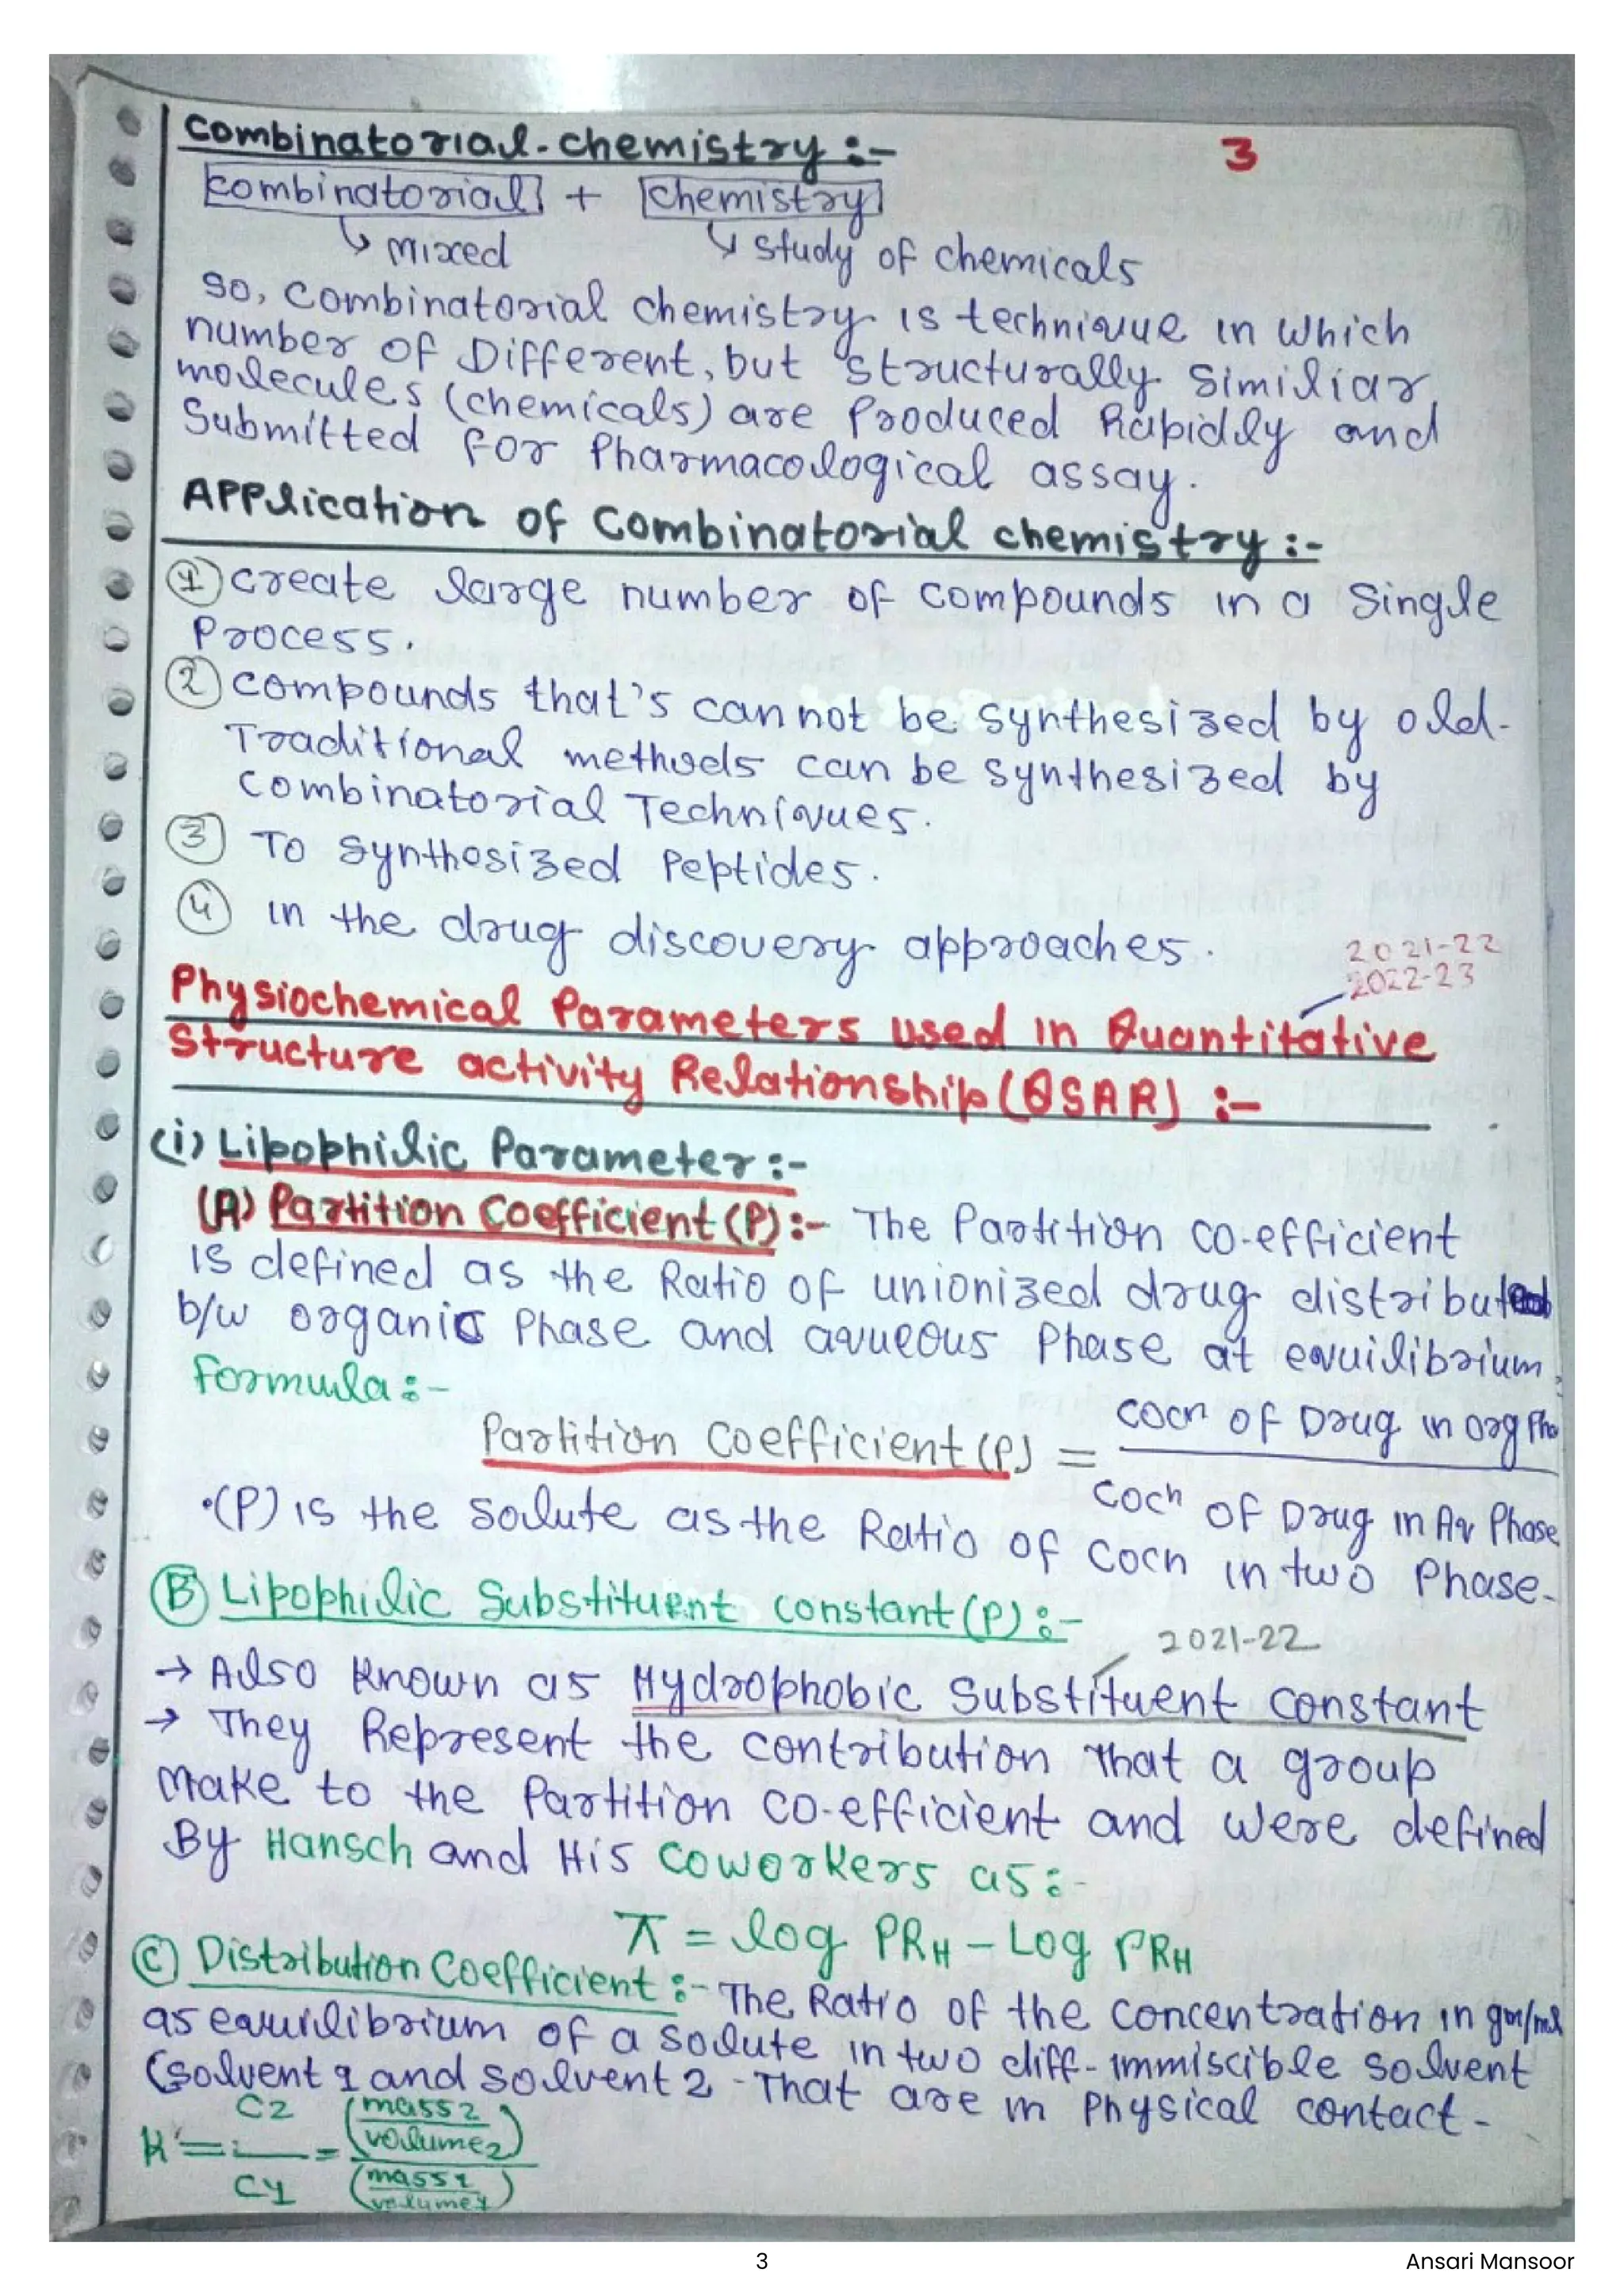 Combinatorial-chemistry :-
3
Combinatorial + Chemistry
↳ Mixed ↳ Study of chemicals
So, Combinatorial chemistry is technique in which
number of Different, but structurally Similiar
molecules (chemicals) are Produced Rapidly and
Submitted for Pharmacological assay.
Application of Combinatorial chemistry :-
① Create large number of Compounds in a Single
Process.
② Compounds that's can not be synthesized by old-
Traditional methods can be synthesized by
Combinatorial Techniques.
③ To Synthesized Peptides.
④ in the drug discovery approaches.
2021-22
2022-23
Physiochemical Parameters used in Quantitative
Structure activity Relationship (QSAR) :-
(i) Lipophilic Parameter :-
(A) Partition Coefficient (P) :- The Partition Co-efficient
is defined as the Ratio of unionized drug distributed
b/w organic Phase and aqueous Phase at equilibrium.
Formula :-
Partition Coefficient (P) = Cocn of Drug in org Pha
Coch of Drug in Aq Phase
•(P) is the Solute as the Ratio of Cocn in two Phase-
Ⓑ Lipophilic Substituent constant (P) :-
2021-22
→ Also Known as Hydrophobic Substituent Constant
→ They Represent the contribution that a group
Make to the Partition Co-efficient and were defined
By Hansch and His Coworkers as :-
π = log PRH - Log PRH
Ⓒ Distribution Coefficient :- The Ratio of the Concentration in gm/ml
as equilibrium of a Solute in two diff- immiscible Solvent
(Solvent 1 and Solvent 2 - That are in Physical contact -
K' = C2 / C1 = (mass 2 / volume 2) / (mass 1 / volume 1)
3
Ansari Mansoor